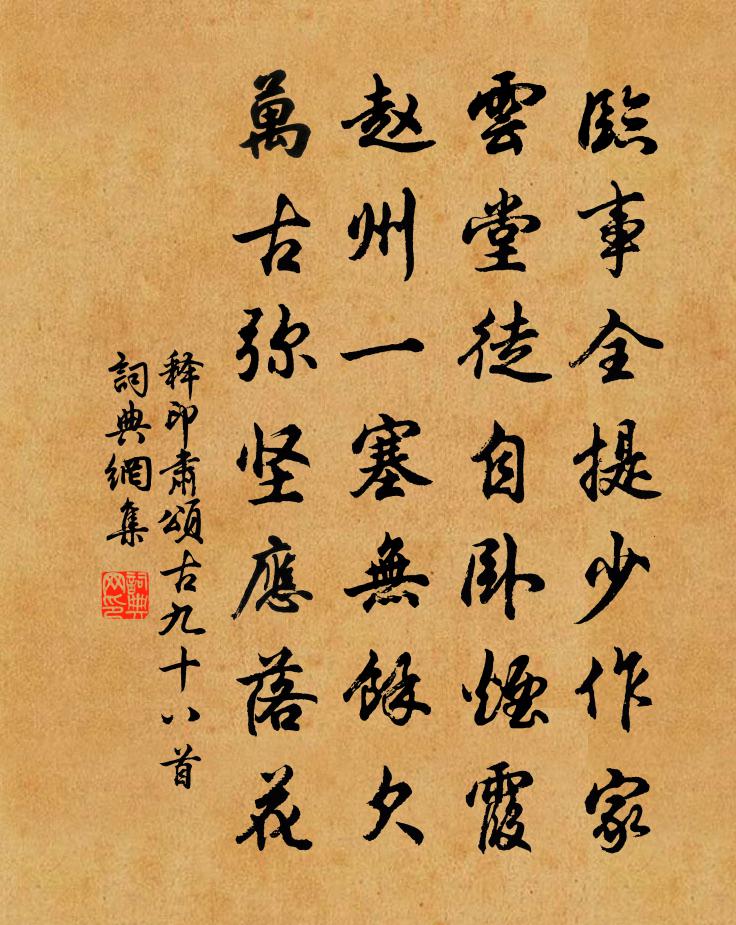 臨事全提少作家
雲堂徒自卧煙霞
赵州一塞無餘欠
萬古弥坚應落花
释印肅頌古九十八首
詞典網集
詞典網印